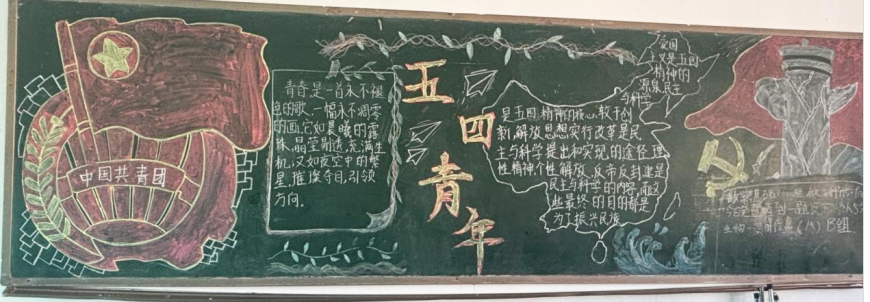 中国共青团
青春是一首永不褪
色的歌,一幅永不凋零
的画,它如晨曦的露
珠,晶莹剔透,充满生
机,又如夜空中的繁
星,璀璨夺目,引领
方向。
五四青年
爱国
主义是五四
精神的
源泉民主
与科学
是五四精神的核心,敢于创
新,解放思想实行改革是民
主与科学提出和实现的途径,理
性精神,个性解放、反帝反封建是
民主与科学的内容,而这
些最终的目的都是
为了振兴民族
(八)B组